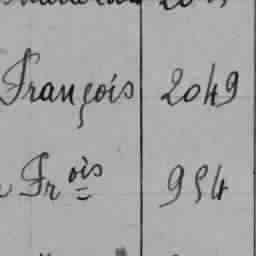 François 2049
Fr ois 954